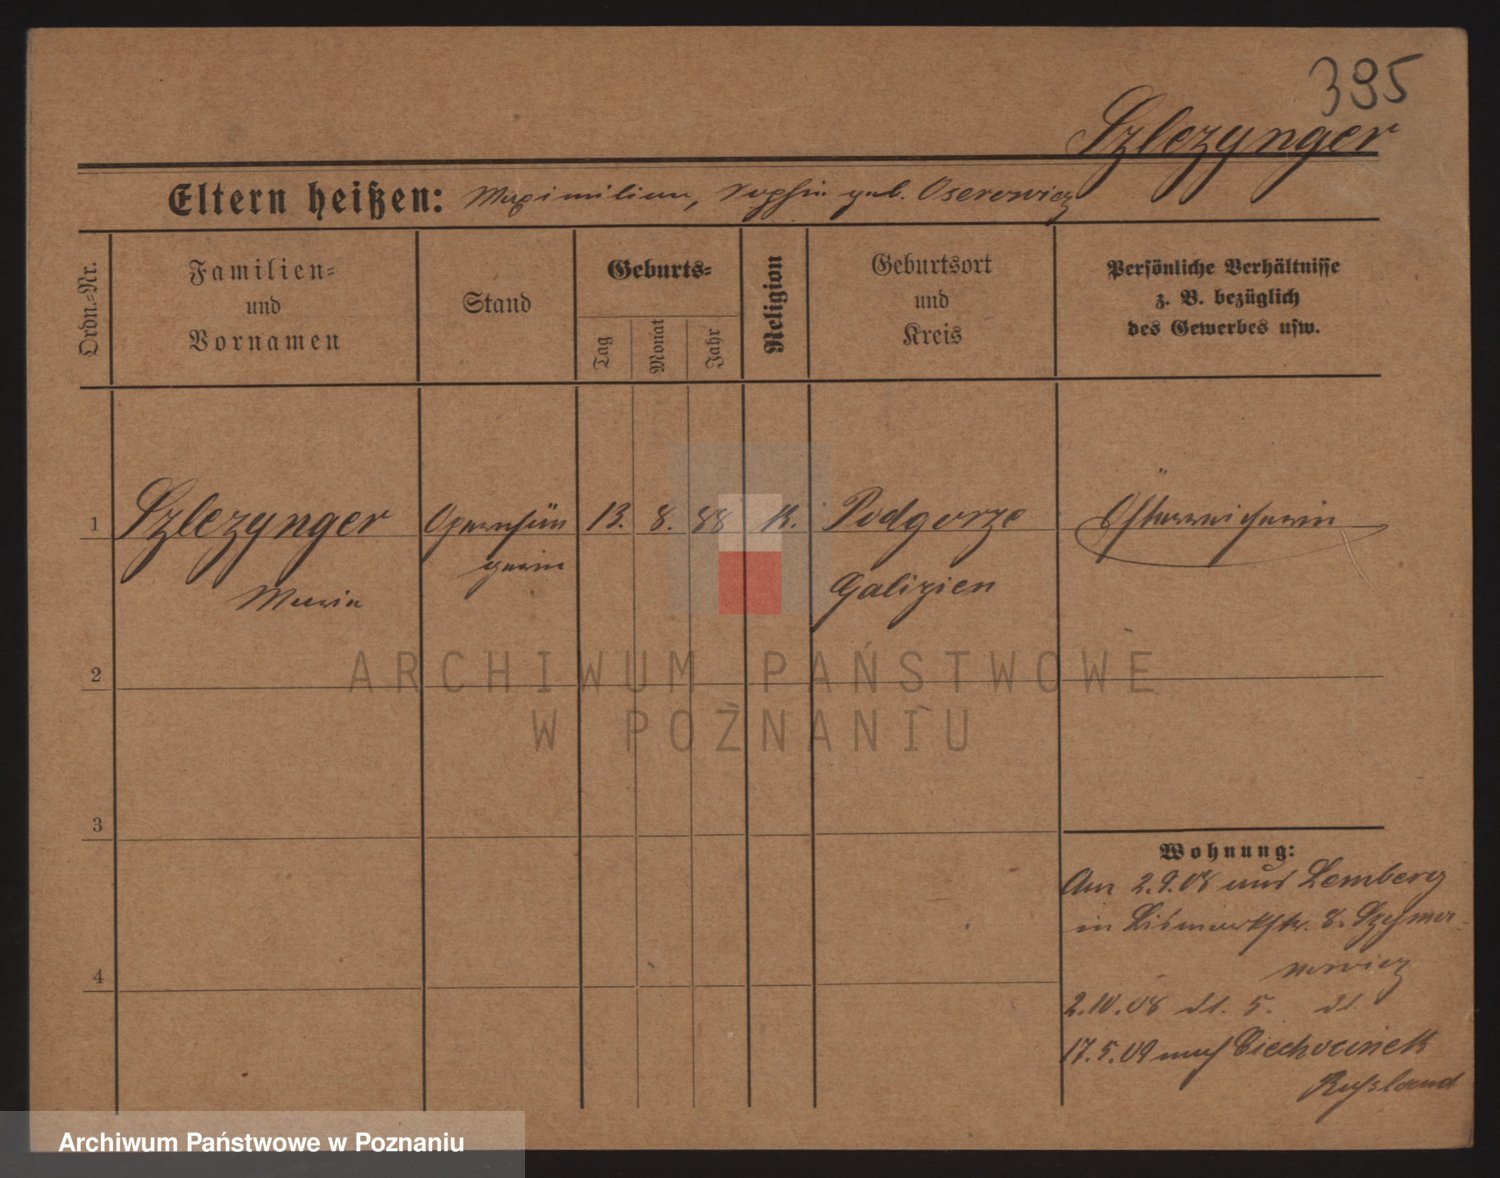 395
Szlezynger
Eltern heißen: Maximilian, Sophie geb. Oserowicz
Ordn.-Nr.
Familien-
und
Vornamen
Stand
Geburts-
Tag
Monat
Jahr
Religion
Geburtsort
und
Kreis
Persönliche Verhältnisse
z. B. bezüglich
des Gewerbes usw.
1 Szlezynger Opernsän 13. 8. 88 K. Podgorze Österreicherin
gerin
Maria
Galizien
ARCHIWUM PAŃSTWOWE
W POZNANIU
2
3
4
Wohnung:
Am 2.9.08 aus Lemberg
in Bismarckstr. 8.
2.10.08 dt. 5. dt.
17.5.09 nach Ciechocinek
Russland
Archiwum Państwowe w Poznaniu